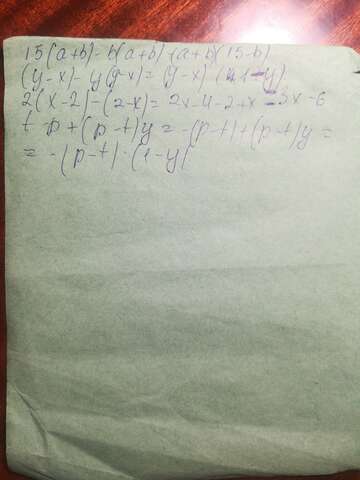 15(a+b)-b(a+b)=(a+b)(15-b)
(y-x)-y(y-x)=(y-x)·(1-y)
2(x-2)-(2-x)=2x-4-2+x=3x-6
t-p+(p-t)y=-(p-t)+(p-t)y=
=-(p-t)·(1-y)